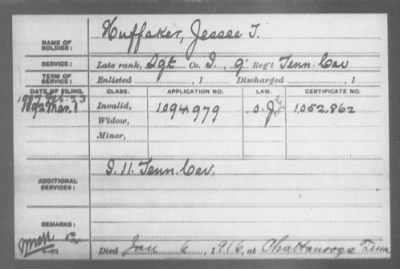 NAME OF SOLDIER: Huffaker, Jessee T.
SERVICE: Late rank, Sgt Co. I, 9 Reg't Tenn. Cav
TERM OF SERVICE: Enlisted , 1 Discharged , 1
DATE OF FILING. CLASS. APPLICATION NO. LAW. CERTIFICATE NO.
1892 Mar. 1 Invalid, 1,094,979 1,052,862
Widow,
Minor,
ADDITIONAL SERVICES: I. 11. Tenn. Cav.
REMARKS:
Died Jan 6, 1916, at Chattanooga Tenn